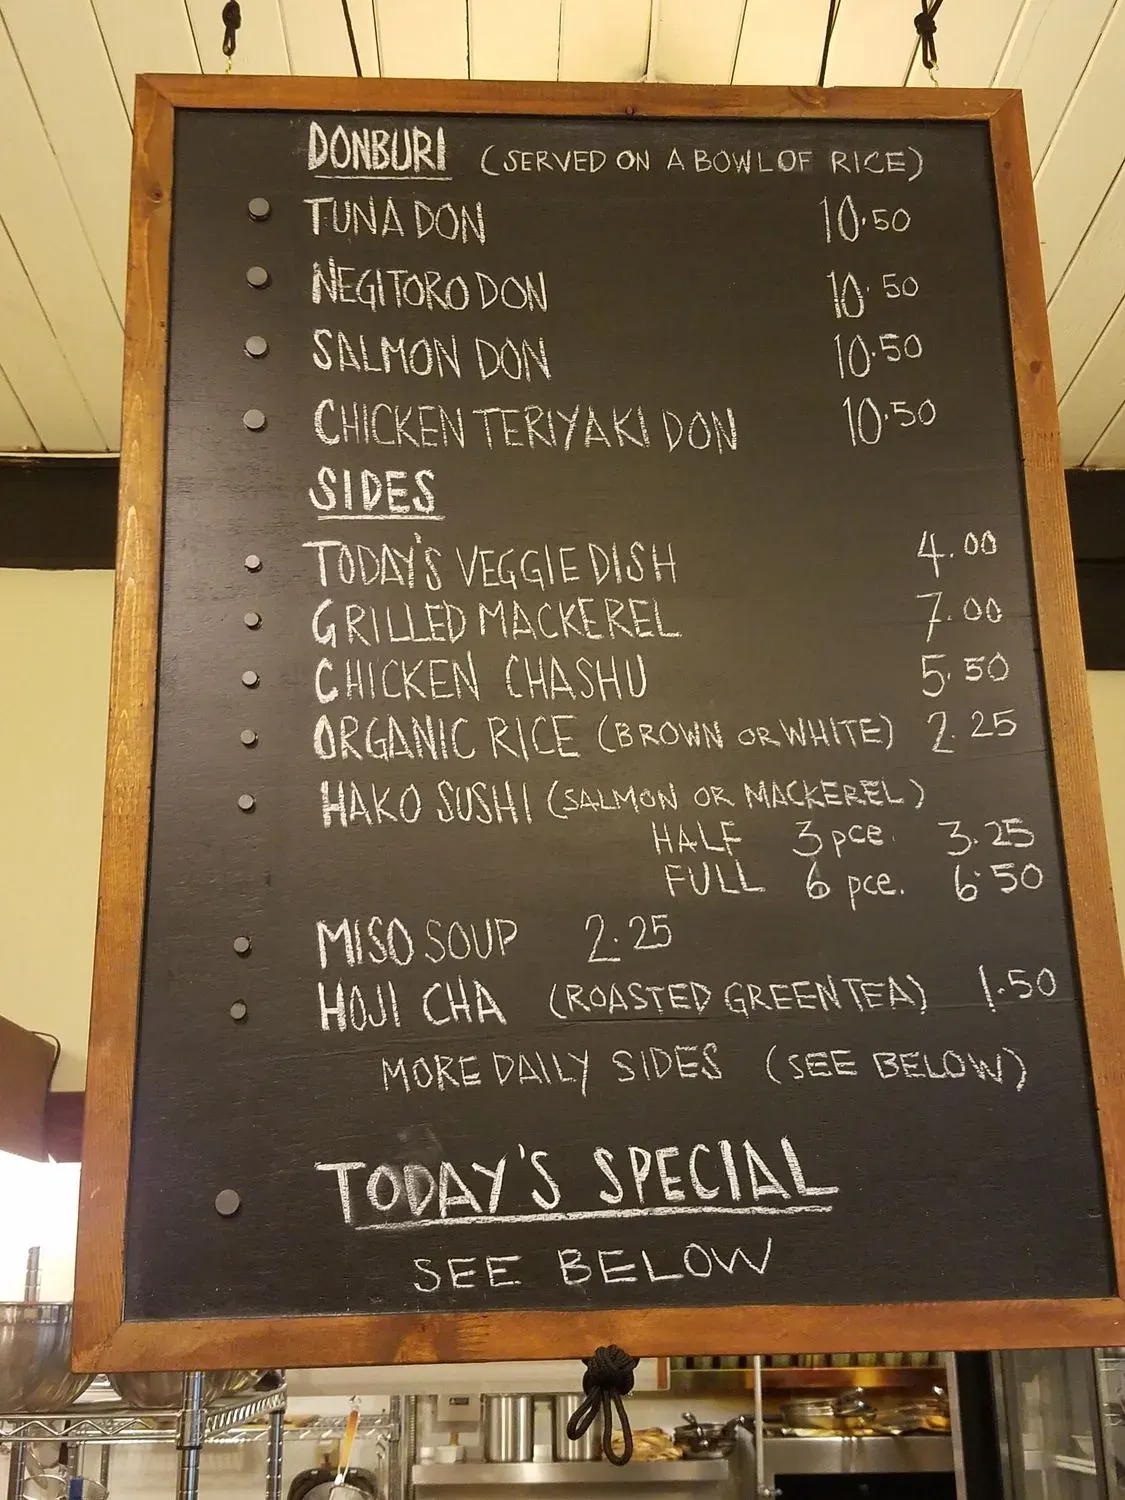 DONBURI (SERVED ON A BOWL OF RICE)
TUNA DON 10.50
NEGITORO DON 10.50
SALMON DON 10.50
CHICKEN TERIYAKI DON 10.50
SIDES
TODAY'S VEGGIE DISH 4.00
GRILLED MACKEREL 7.00
CHICKEN CHASHU 5.50
ORGANIC RICE (BROWN OR WHITE) 2.25
HAKO SUSHI (SALMON OR MACKEREL)
HALF 3 pce. 3.25
FULL 6 pce. 6.50
MISO SOUP 2.25
HOJI CHA (ROASTED GREEN TEA) 1.50
MORE DAILY SIDES (SEE BELOW)
TODAY'S SPECIAL
SEE BELOW